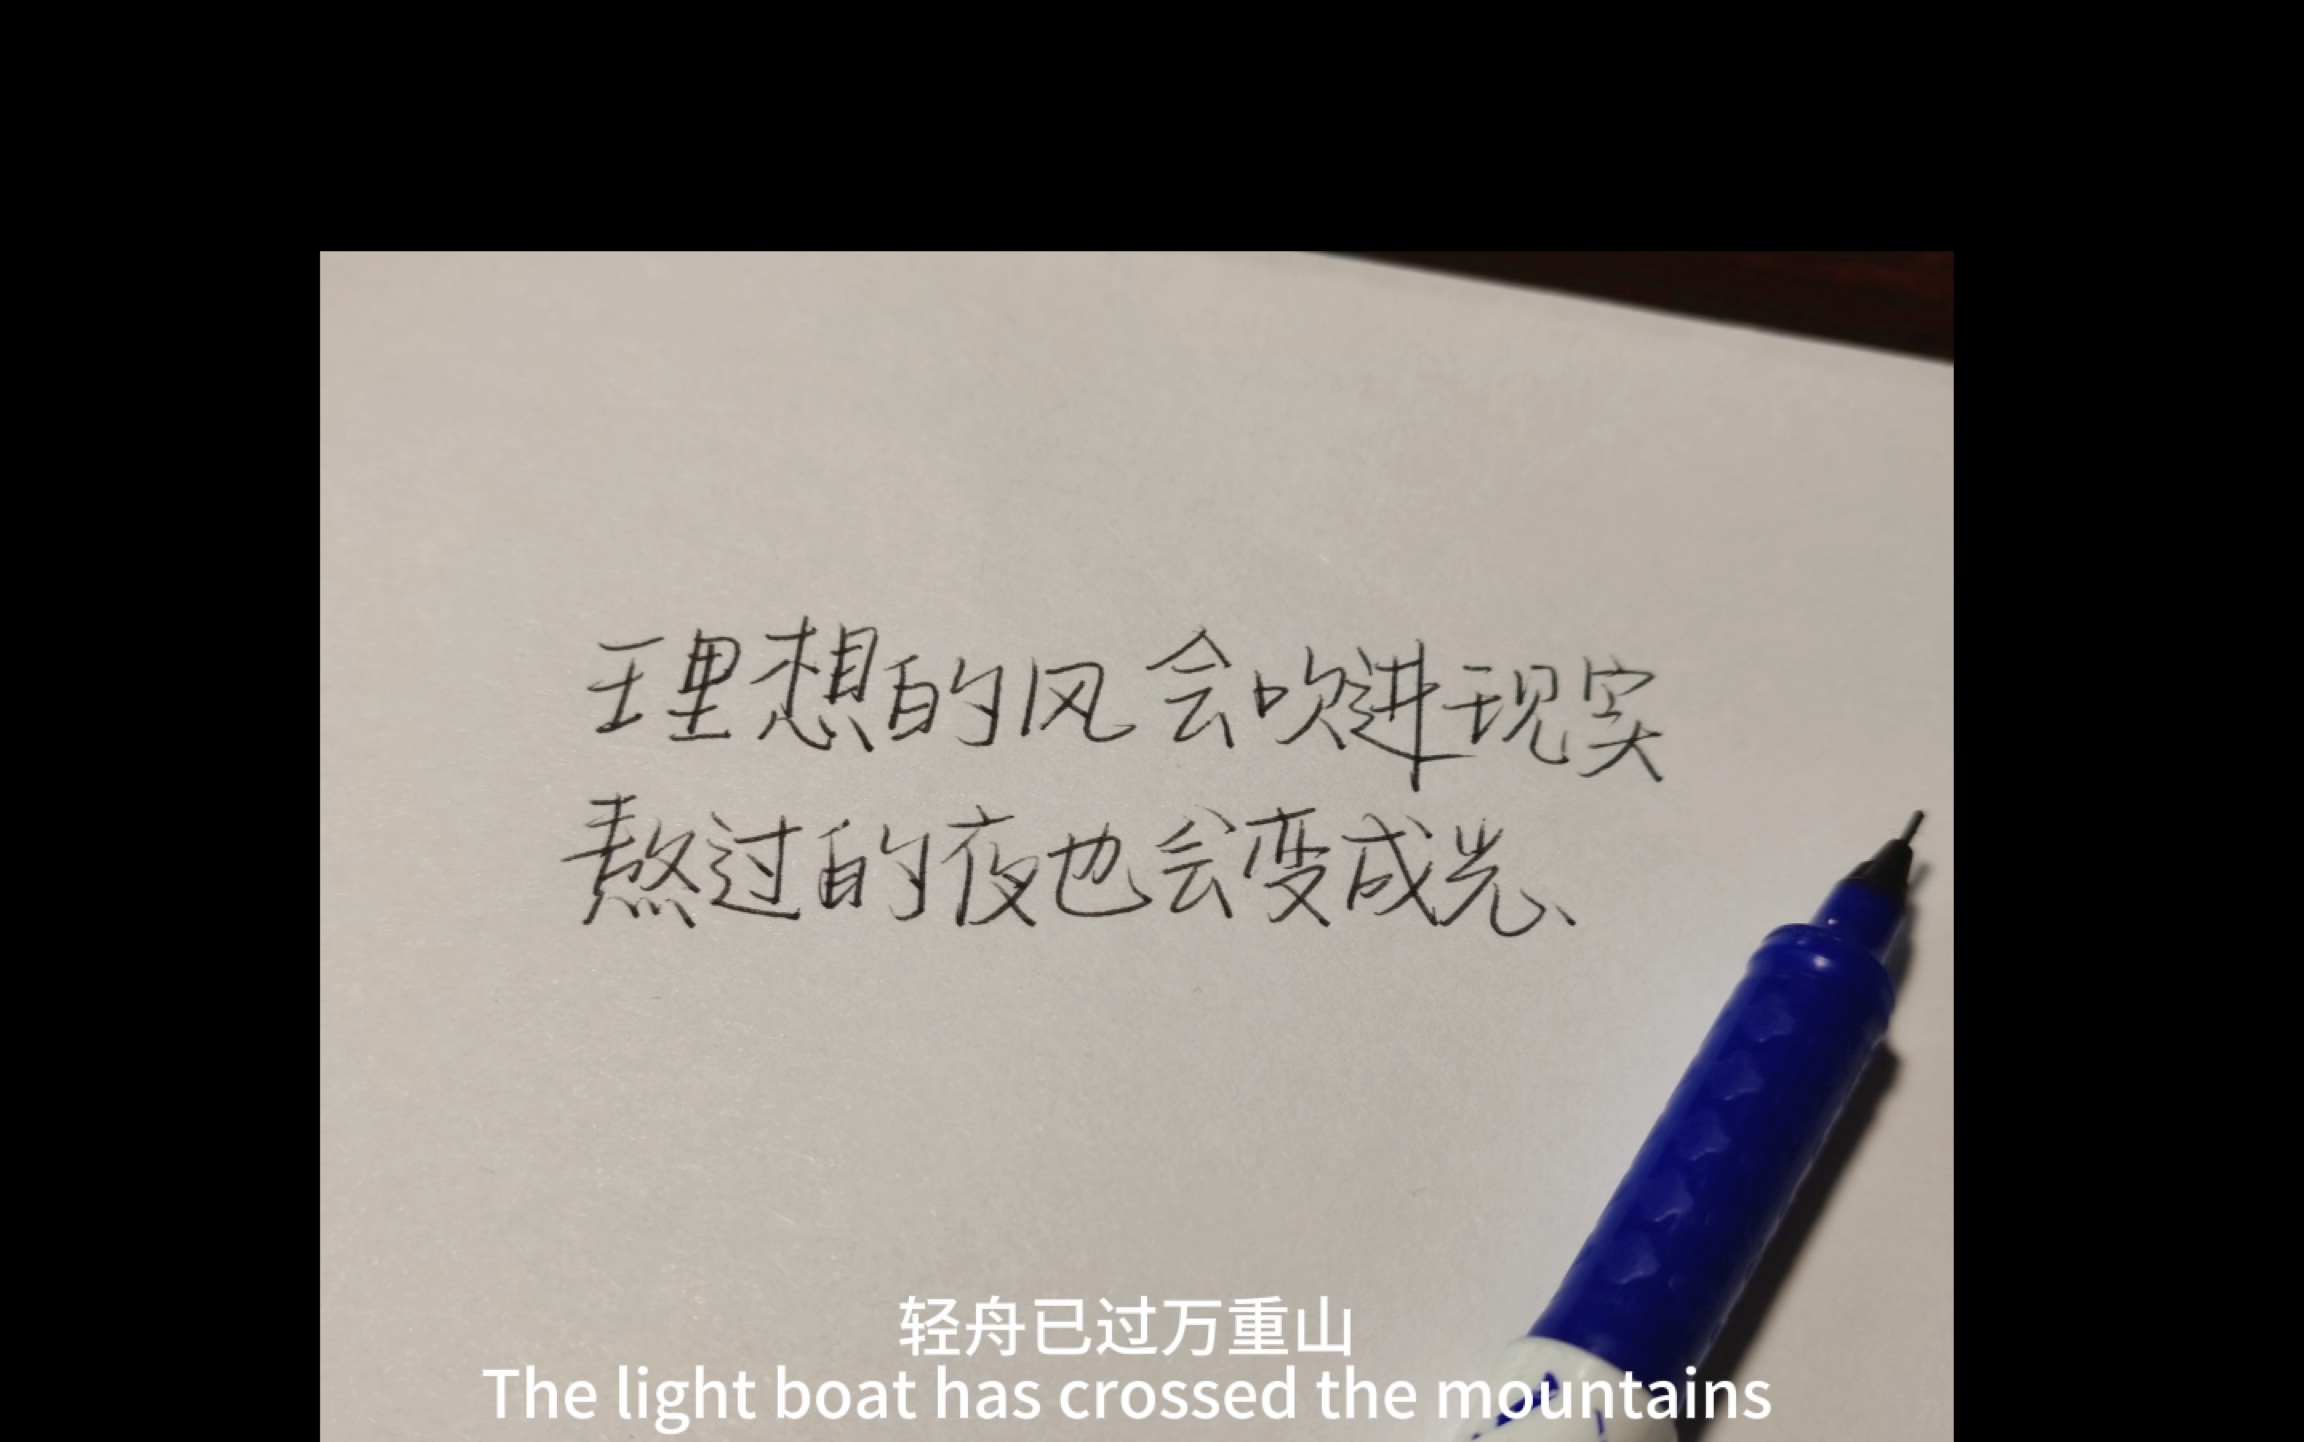 理想的风会吹进现实
熬过的夜也会变成光、
轻舟已过万重山
The light boat has crossed the mountains